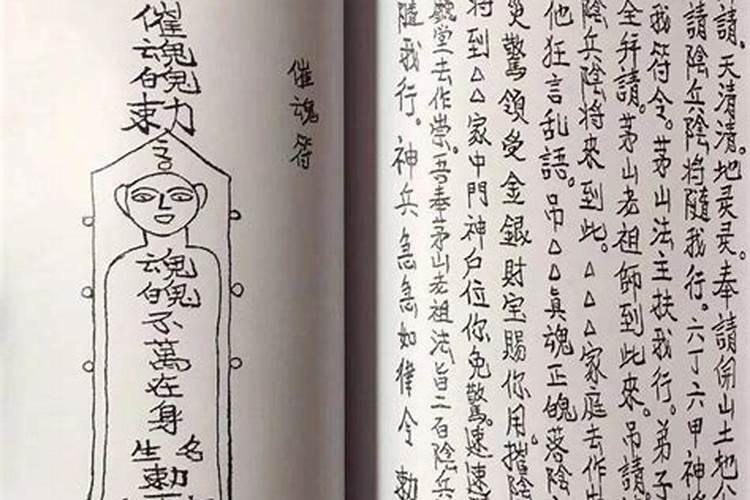 請。天清清。地灵灵。奉請開山土地公
請陰兵陰將隨我行。六丁六甲神將
我符令。茅山法主扶我行。弟子
全拜請。茅山老祖師到此來。吊請
陰兵陰將來到此。△△△家庭去作
他狂言乱語。吊△△真魂正魄落陰
災驚領受金銀財宝賜你用。摧陰
将到△△家中門神户位你免驚。速速
堂去作祟。吾奉茅山老祖法旨二百陰兵
隨我行。神兵急急如律令 勅
催魂符
催魂魄勅
魂魄不萬在身
名
生
勅